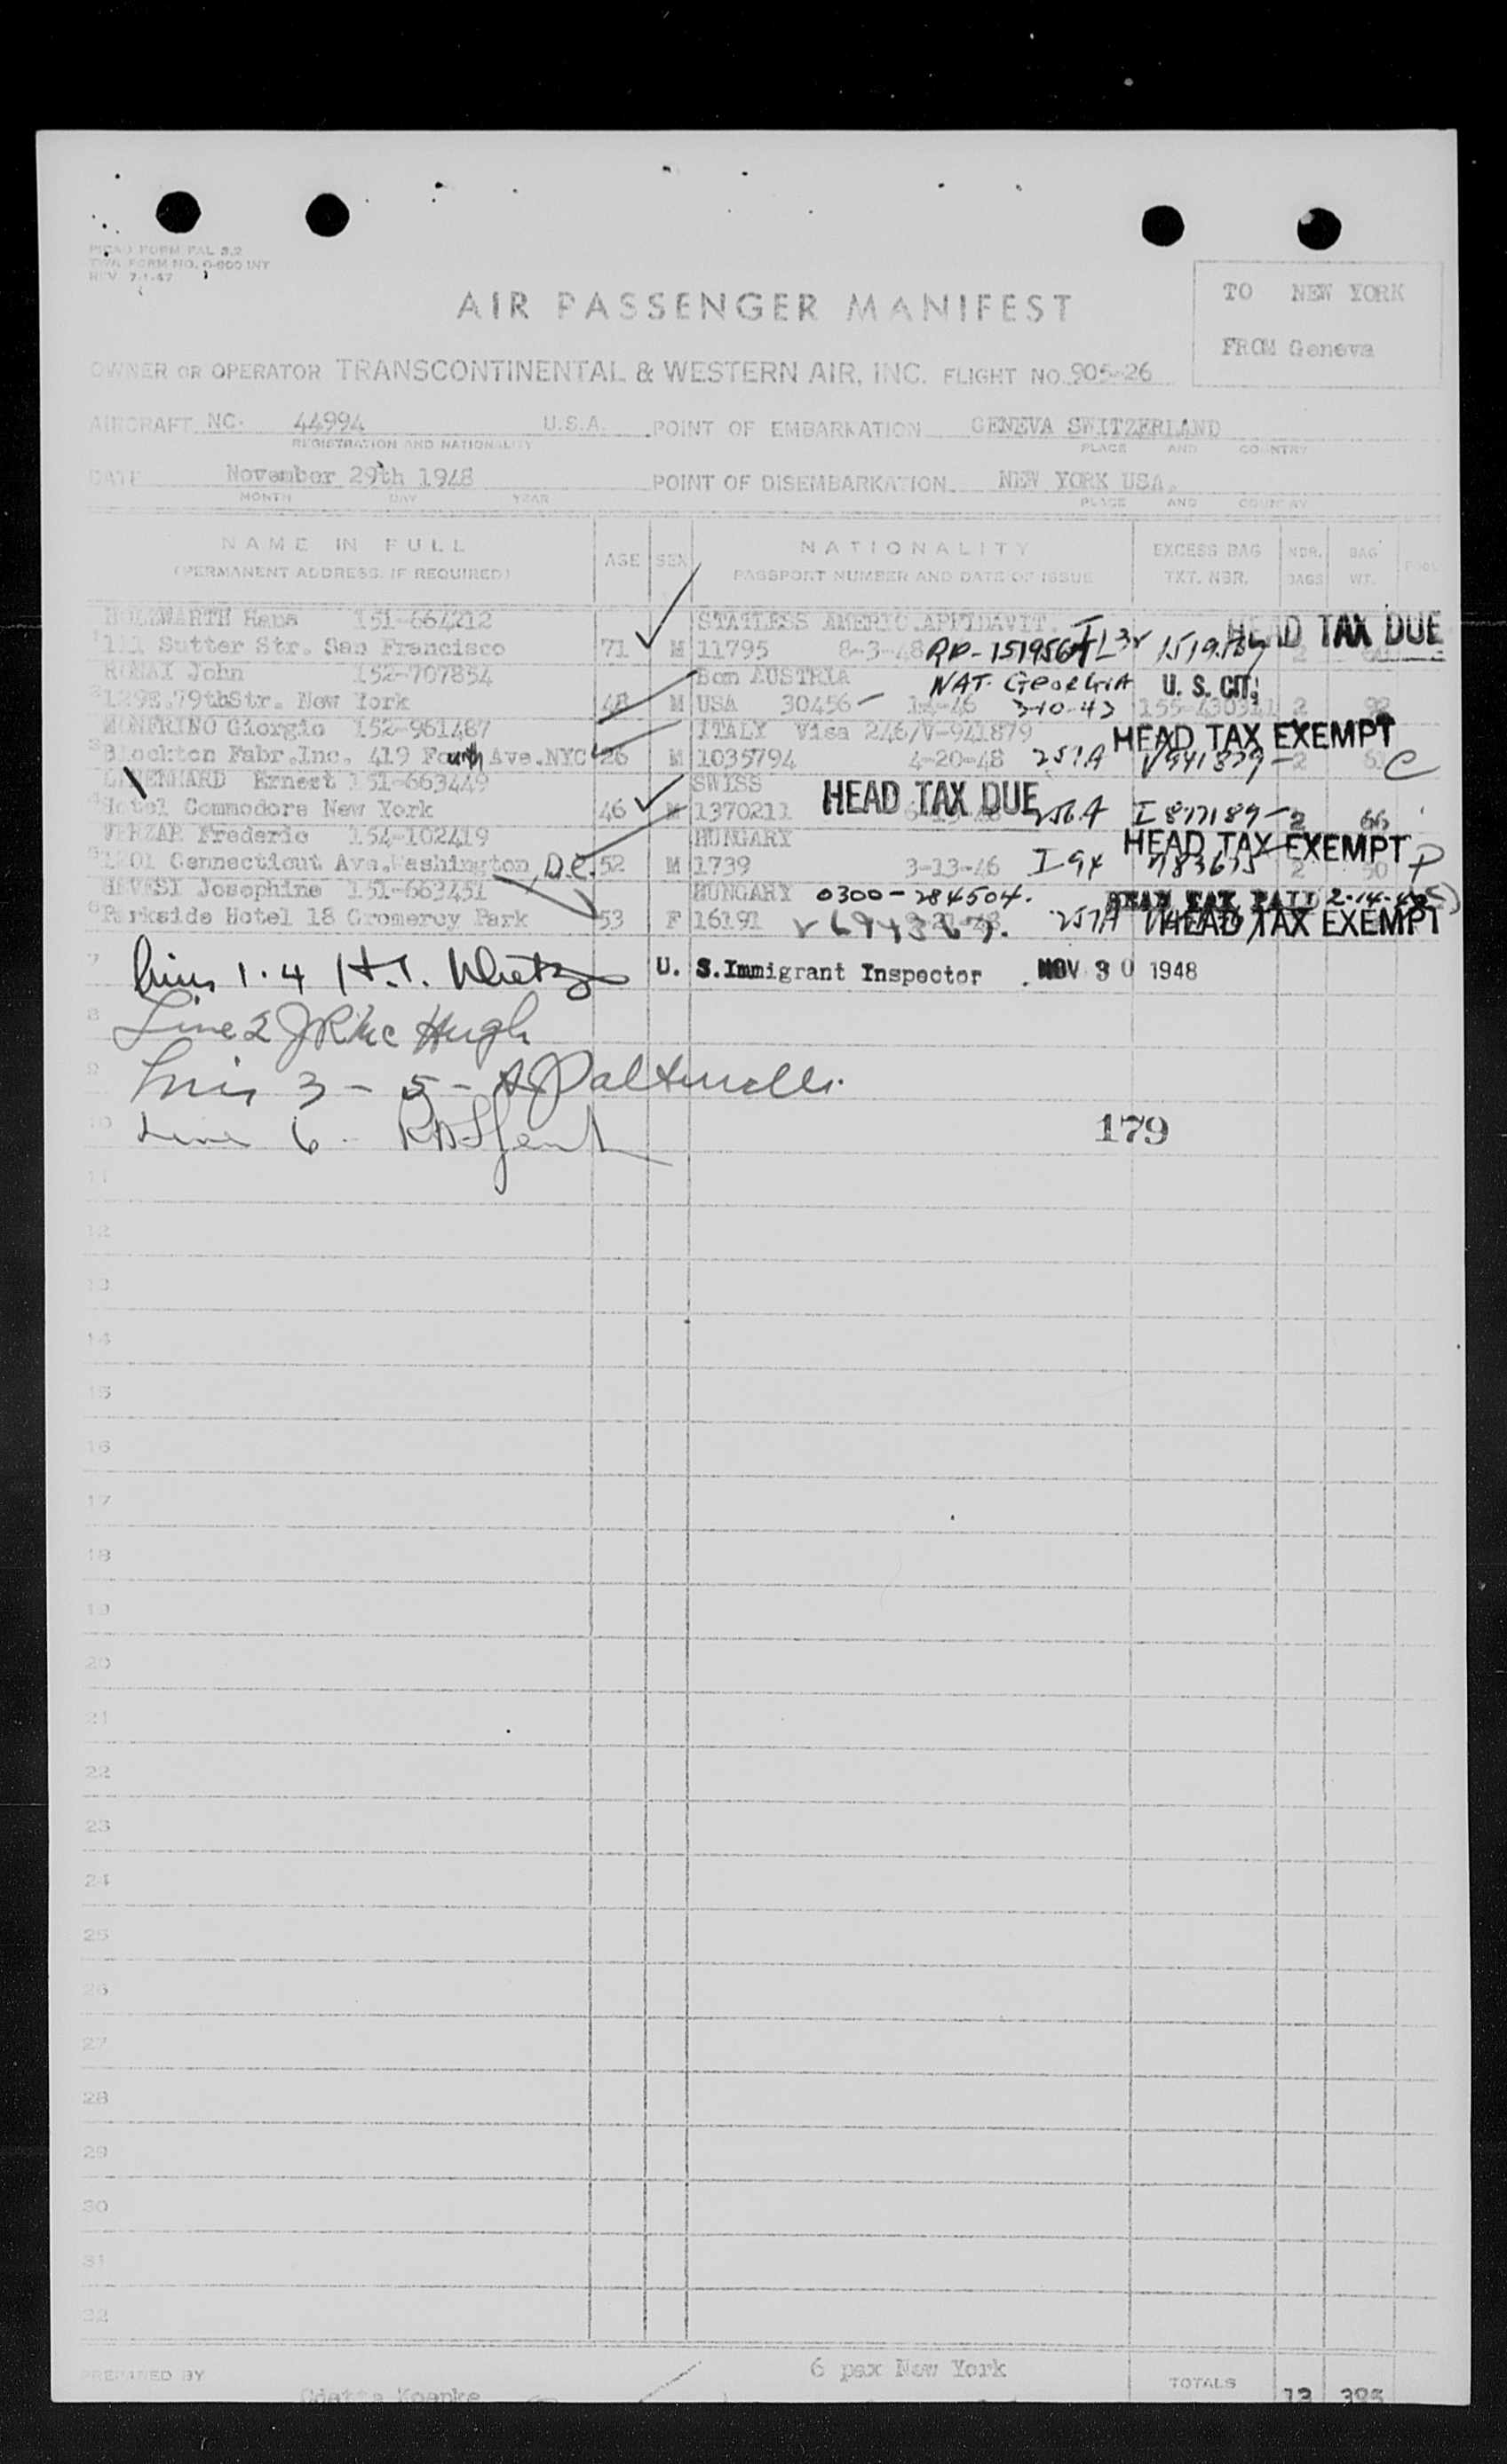 PICAO FORM PAL 3.2
TWA FORM NO. 0-800 INT
REV 7-1-47
AIR PASSENGER MANIFEST
TO NEW YORK
FROM Geneva
OWNER OR OPERATOR TRANSCONTINENTAL & WESTERN AIR, INC. FLIGHT NO. 905-26
AIRCRAFT NC- 44994 U.S.A. POINT OF EMBARKATION GENEVA SWITZERLAND
REGISTRATION AND NATIONALITY PLACE AND COUNTRY
DATE November 29th 1948 POINT OF DISEMBARKATION NEW YORK USA.
MONTH DAY YEAR PLACE AND COUNTRY
NAME IN FULL AGE SEX NATIONALITY EXCESS BAG NBR. BAG
(PERMANENT ADDRESS, IF REQUIRED) PASSPORT NUMBER AND DATE OF ISSUE TKT. NBR. BAGS WT.
HOLZWARTH Hans 151-664212 STATLESS AMERIC.AFFIDAVIT. HEAD TAX DUE
1 111 Sutter Str. San Francisco 71 M 11795 8-3-48 RP-1519564 2
RONAI John 152-707854 Bon AUSTRIA NAT. GEORGIA U. S. CIT.
2 129E.79thStr. New York 48 M USA 30456 - 3-10-43 155-430311 2 92
MONFRINO Giorgio 152-961487 ITALY Visa 246/V-941879 HEAD TAX EXEMPT
3 Blockton Fabr.Inc. 419 Fourth Ave.NYC 26 M 1035794 4-20-48 257A V941879 - 2 C
Ernest 151-663449 SWISS HEAD TAX DUE
4 Hotel Commodore New York 46 M 1370211 256A I 877189 - 2 66
VERZAR Frederic 154-102419 HUNGARY HEAD TAX EXEMPT
5 1201 Connecticut Ave.Washington, D.C. 52 M 1739 3-13-46 I 94 783675 2 50 P
HEVESI Josephine 151-663451 HUNGARY 0300-284504. HEAD TAX PAID 2-14-48
6 Parkside Hotel 18 Gromercy Park 53 F 16191 257A HEAD TAX EXEMPT
7 Lines 1.4 H.T. U. S. Immigrant Inspector NOV 30 1948
8 Line 2 JR McHugh
9 Lines 3 - 5 -
10 Line 6 - 179
11
12
13
14
15
16
17
18
19
20
21
22
23
24
25
26
27
28
29
30
31
32
PREPARED BY Odette Koepke 6 pax New York TOTALS 12 395